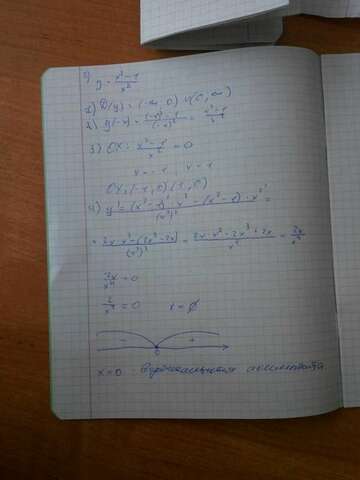 9) y = (x² - 1)/x²
1) D(y) = (-∞, 0) ∪ (0, ∞)
2) y(-x) = ((-x)² - 1)/(-x)² = (x² - 1)/x²
3) OX: (x² - 1)/x² = 0
x = -1 x = 1
OX: (-1, 0) (1, 0)
4) y' = ((x² - 1)' · x² - (x² - 1) · x²')/(x²)² =
= (2x · x² - (2x³ - 2x))/(x²)² = (2x · x² - 2x³ + 2x)/x⁴ = 2x/x⁴
2x/x⁴ = 0
2/x³ = 0 x = ∅
- +
0
x = 0 - вертикальная асимптота